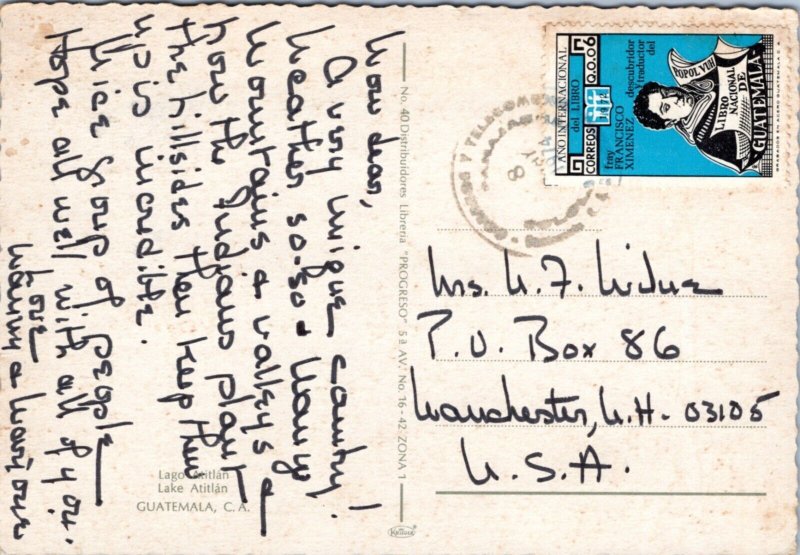 Mom dear,
A very unique country!
Weather so-so - Many
mountains & valleys &
how the Indians plant
the hillsides then keep them
up is incredible.
Nice group of people
Hope all well with all of you.
Love
No. 40 Distribuidores Libreria "PROGRESO" 5 a AV. No. 16 - 42 ZONA 1
Lago Atitlán
Lake Atitlán
GUATEMALA, C. A.
AÑO INTERNACIONAL
del LIBRO
CORREOS Q0.06
fray
FRANCISCO
XIMENEZ
descubridor
y traductor
del
POPOL VUH
LIBRO
NACIONAL
DE
GUATEMALA
GRABADOS EN ACERO GUATEMALA
Y TELECOMU
8
Mrs. N. F.
P.O. Box 86
Manchester, N.H. 03105
U.S.A.